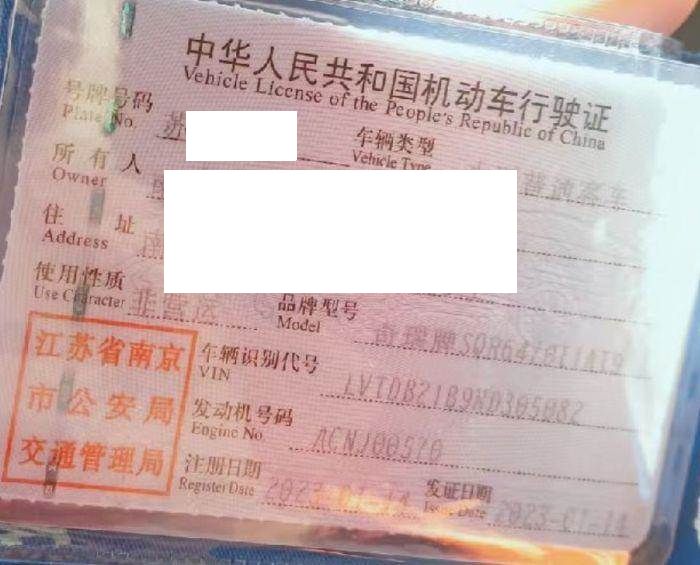 中华人民共和国机动车行驶证
Vehicle License of the People's Republic of China
号牌号码 苏 车辆类型 普通客车
Plate No. Vehicle Type
所有人
Owner
住址 南
Address
使用性质 非营运 品牌型号 奇瑞牌
Use Character Model
江苏省南京
市公安局
交通管理局
车辆识别代号
VIN LVTDB21B9ND305082
发动机号码
Engine No. ACNJ00570
注册日期 发证日期 2023-01-14
Register Date 2023-01-14 Issue Date